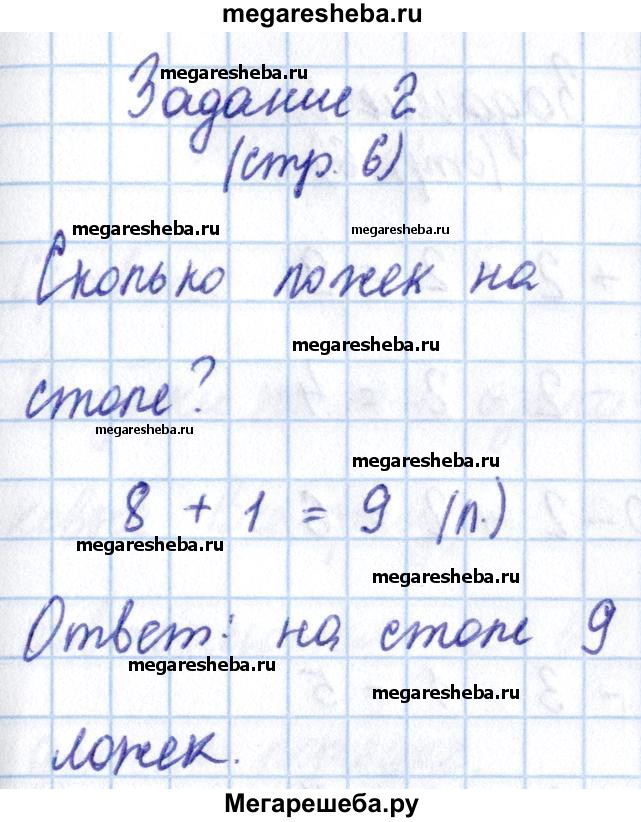 megaresheba.ru
megaresheba.ru
Задание 2
(стр. 6)
megaresheba.ru megaresheba.ru
Сколько ложек на
megaresheba.ru
столе?
megaresheba.ru
megaresheba.ru
8 + 1 = 9 (л.)
megaresheba.ru
megaresheba.ru
Ответ: на столе 9
megaresheba.ru
megaresheba.ru
ложек.
Мегарешеба.ру